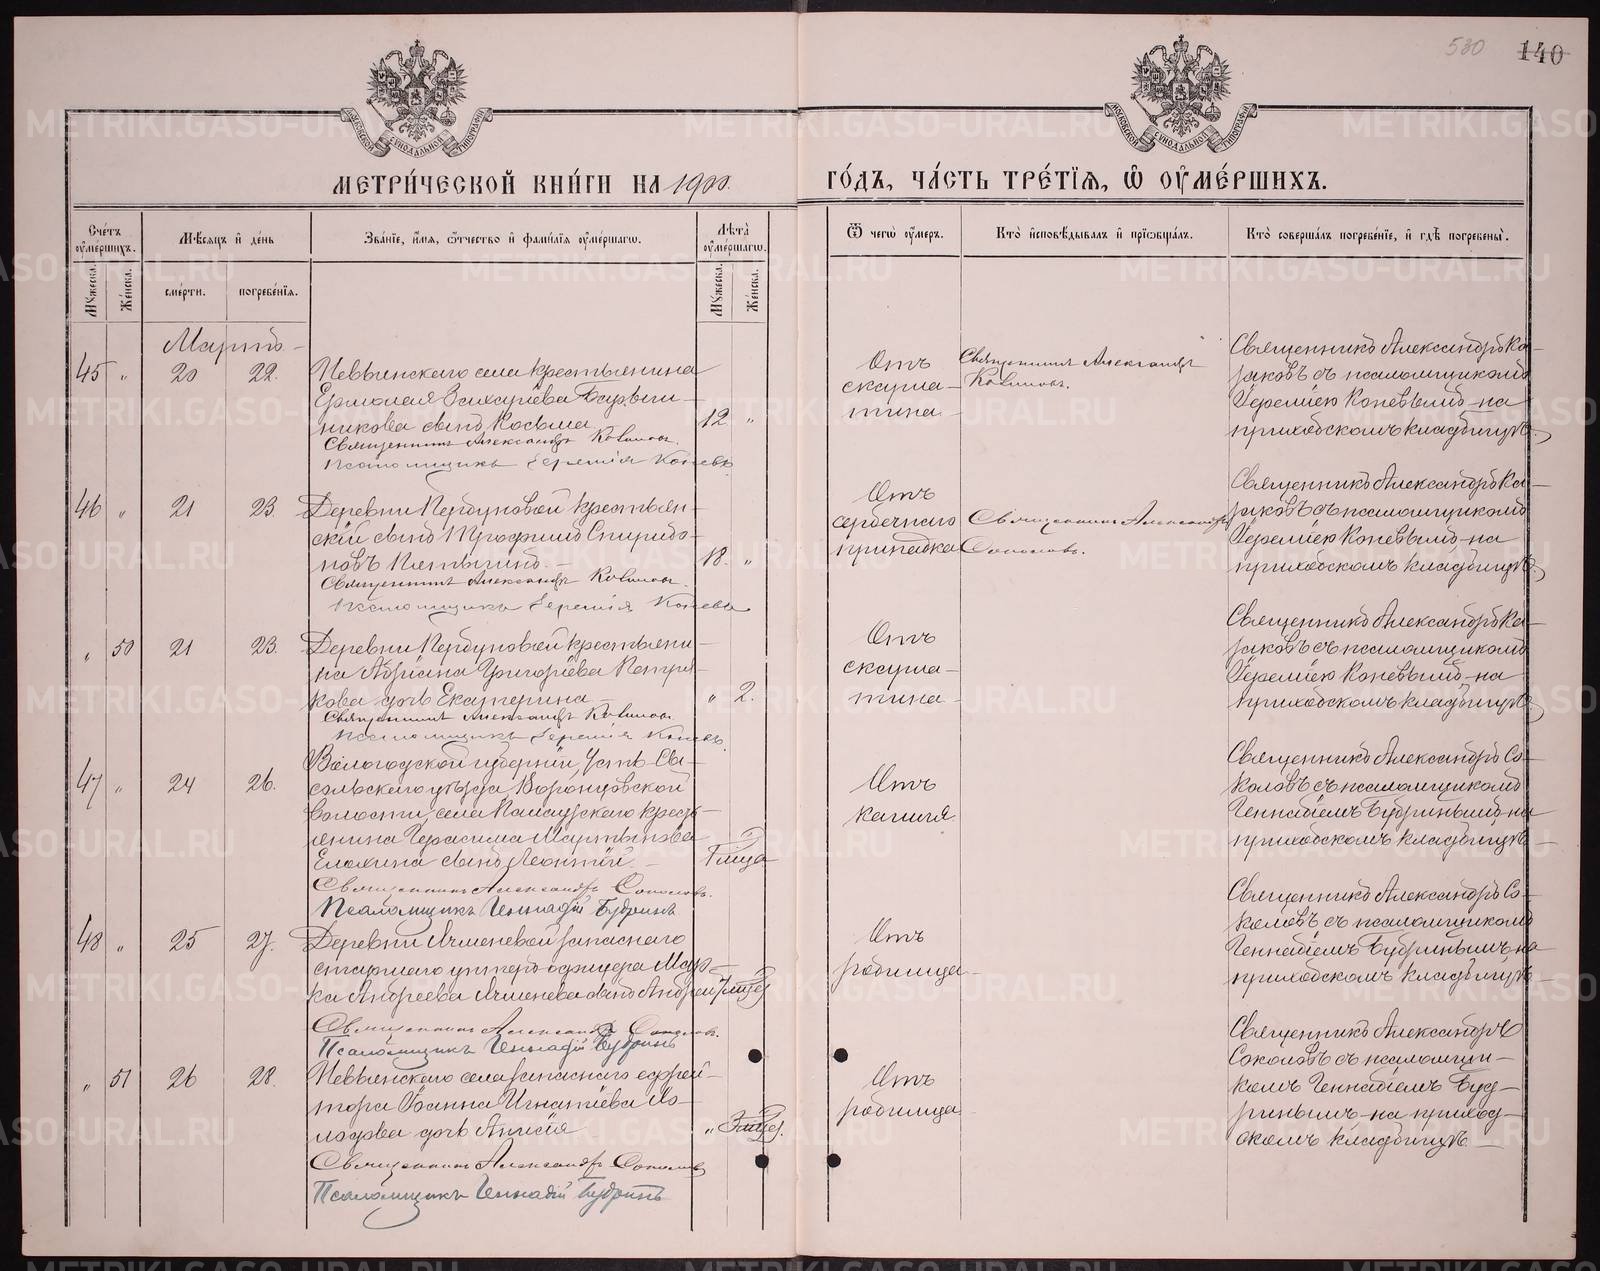 530 140
МЕТРИ́ЧЕСКОЙ КНИ́ГИ НА 1900.
ГО́ДЪ, ЧА́СТЬ ТРЕ́ТІѦ, Ѡ҆ ОУ҆МЕ́РШИХЪ.
Сче́тъ оу҆ме́ршихъ.
Мꙋжеска.
Же́нска.
Мѣ́сѧцъ и҆ де́нь
сме́рти.
погребе́нїѧ.
Зва́нїе, и҆́мѧ, ѻ҆́тчество и҆ фами́лїѧ оу҆ме́ршагѡ.
Лѣ́та оу҆ме́ршагѡ.
Мꙋжеска.
Же́нска.
Ѿ чегѡ̀ оу҆́меръ.
Кто̀ и҆сповѣ́дывалъ и҆ прїѡбща́лъ.
Кто̀ соверша́лъ погребе́нїе, и҆ гдѣ̀ погребены̀.
Мартъ
45 „ 20 22.
Невьянскаго села крестьянина
Ермолая
никова сынъ Косьма
12 „
Священникъ Александръ
Псаломщикъ Іеремія Коневъ
Отъ
скарла-
тина
Священникъ Александръ
Священникъ Александръ Ка-
заковъ съ псаломщикомъ
Іереміею Коневымъ на
приходскомъ кладбищѣ.
46 „ 21 23.
Деревни крестьян-
скій сынъ Трофимъ Спиридо-
новъ
18. „
Священникъ Александръ
Псаломщикъ Іеремія Коневъ
Отъ
сердечнаго
припадка
Священникъ Александръ
Соколовъ.
Священникъ Александръ Ка-
заковъ съ псаломщикомъ
Іереміею Коневымъ на
приходскомъ кладбищѣ.
„ 50 21 23.
Деревни крестьяни-
на Григоріева Петря-
кова дочь Екатерина
„ 2.
Священникъ Александръ
Псаломщикъ Іеремія Коневъ.
Отъ
скарла-
тина
Священникъ Александръ Ка-
заковъ съ псаломщикомъ
Іереміею Коневымъ на
приходскомъ кладбищѣ
47 „ 24 26.
Вологодской губерніи Усть-Сы-
сольскаго уѣзда Воронцовской
волости, села кресть-
янина Герасима Мартынова
Елохина сынъ Леонтій
Священникъ Александръ Соколовъ.
Псаломщикъ Геннадій Будринъ
Отъ
кашля
Священникъ Александръ Со-
коловъ съ псаломщикомъ
Геннадіемъ Будринымъ на
приходскомъ кладбищѣ
48 „ 25 27.
Деревни Ячменевой запаснаго
старшаго унтеръ-офицера Мар-
ка Андреева Ячменева сынъ Андрей
Священникъ Александръ Соколовъ.
Псаломщикъ Геннадій Будринъ
Отъ
родимца
Священникъ Александръ Со-
коловъ съ псаломщикомъ
Геннадіемъ Будринымъ на
приходскомъ кладбищѣ
„ 51 26 28.
Невьянскаго села запаснаго ефрей-
тора Іоанна Игнатіева
дочь Анисія
Священникъ Александръ Соколовъ
Псаломщикъ Геннадій Будринъ
Отъ
родимца
Священникъ Александръ
Соколовъ съ псаломщи-
комъ Геннадіемъ Буд-
ринымъ на приход-
скомъ кладбищѣ
METRIKI.GASO-URAL.RU